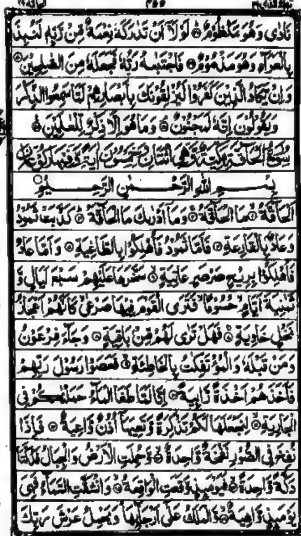 نَادٰى وَهُوَ مَكْظُوْمٌ ۝ لَوْلَاۤ اَنْ تَدٰرَكَهٗ نِعْمَةٌ مِّنْ رَّبِّهٖ لَنُبِذَ
بِالْعَرَآءِ وَهُوَ مَذْمُوْمٌ ۝ فَاجْتَبٰىهُ رَبُّهٗ فَجَعَلَهٗ مِنَ الصّٰلِحِيْنَ ۝
وَاِنْ يَّكَادُ الَّذِيْنَ كَفَرُوْا لَيُزْلِقُوْنَكَ بِاَبْصَارِهِمْ لَمَّا سَمِعُوا الذِّكْرَ
وَيَقُوْلُوْنَ اِنَّهٗ لَمَجْنُوْنٌ ۝ وَمَا هُوَ اِلَّا ذِكْرٌ لِّلْعٰلَمِيْنَ ۝
سُوْرَةُ الْحَآقَّةِ مَكِّيَّةٌ وَّهِىَ اثْنَتَانِ وَخَمْسُوْنَ اٰيَةً وَّفِيْهَا رُكُوْعَانِ
بِسْمِ اللهِ الرَّحْمٰنِ الرَّحِيْمِ ۝
اَلْحَآقَّةُ ۝ مَا الْحَآقَّةُ ۝ وَمَاۤ اَدْرٰىكَ مَا الْحَآقَّةُ ۝ كَذَّبَتْ ثَمُوْدُ
وَعَادٌۢ بِالْقَارِعَةِ ۝ فَاَمَّا ثَمُوْدُ فَاُهْلِكُوْا بِالطَّاغِيَةِ ۝ وَاَمَّا عَادٌ
فَاُهْلِكُوْا بِرِيْحٍ صَرْصَرٍ عَاتِيَةٍ ۝ سَخَّرَهَا عَلَيْهِمْ سَبْعَ لَيَالٍ وَّ
ثَمٰنِيَةَ اَيَّامٍ حُسُوْمًا فَتَرَى الْقَوْمَ فِيْهَا صَرْعٰى كَاَنَّهُمْ اَعْجَازُ
نَخْلٍ خَاوِيَةٍ ۝ فَهَلْ تَرٰى لَهُمْ مِّنْۢ بَاقِيَةٍ ۝ وَجَآءَ فِرْعَوْنُ
وَمَنْ قَبْلَهٗ وَالْمُؤْتَفِكٰتُ بِالْخَاطِئَةِ ۝ فَعَصَوْا رَسُوْلَ رَبِّهِمْ
فَاَخَذَهُمْ اَخْذَةً رَّابِيَةً ۝ اِنَّا لَمَّا طَغَا الْمَآءُ حَمَلْنٰكُمْ فِى
الْجَارِيَةِ ۝ لِنَجْعَلَهَا لَكُمْ تَذْكِرَةً وَّتَعِيَهَاۤ اُذُنٌ وَّاعِيَةٌ ۝ فَاِذَا
نُفِخَ فِى الصُّوْرِ نَفْخَةٌ وَّاحِدَةٌ ۝ وَحُمِلَتِ الْاَرْضُ وَالْجِبَالُ فَدُكَّتَا
دَكَّةً وَّاحِدَةً ۝ فَيَوْمَئِذٍ وَّقَعَتِ الْوَاقِعَةُ ۝ وَانْشَقَّتِ السَّمَآءُ فَهِىَ
يَوْمَئِذٍ وَّاهِيَةٌ ۝ وَّالْمَلَكُ عَلٰۤى اَرْجَآئِهَا وَيَحْمِلُ عَرْشَ رَبِّكَ